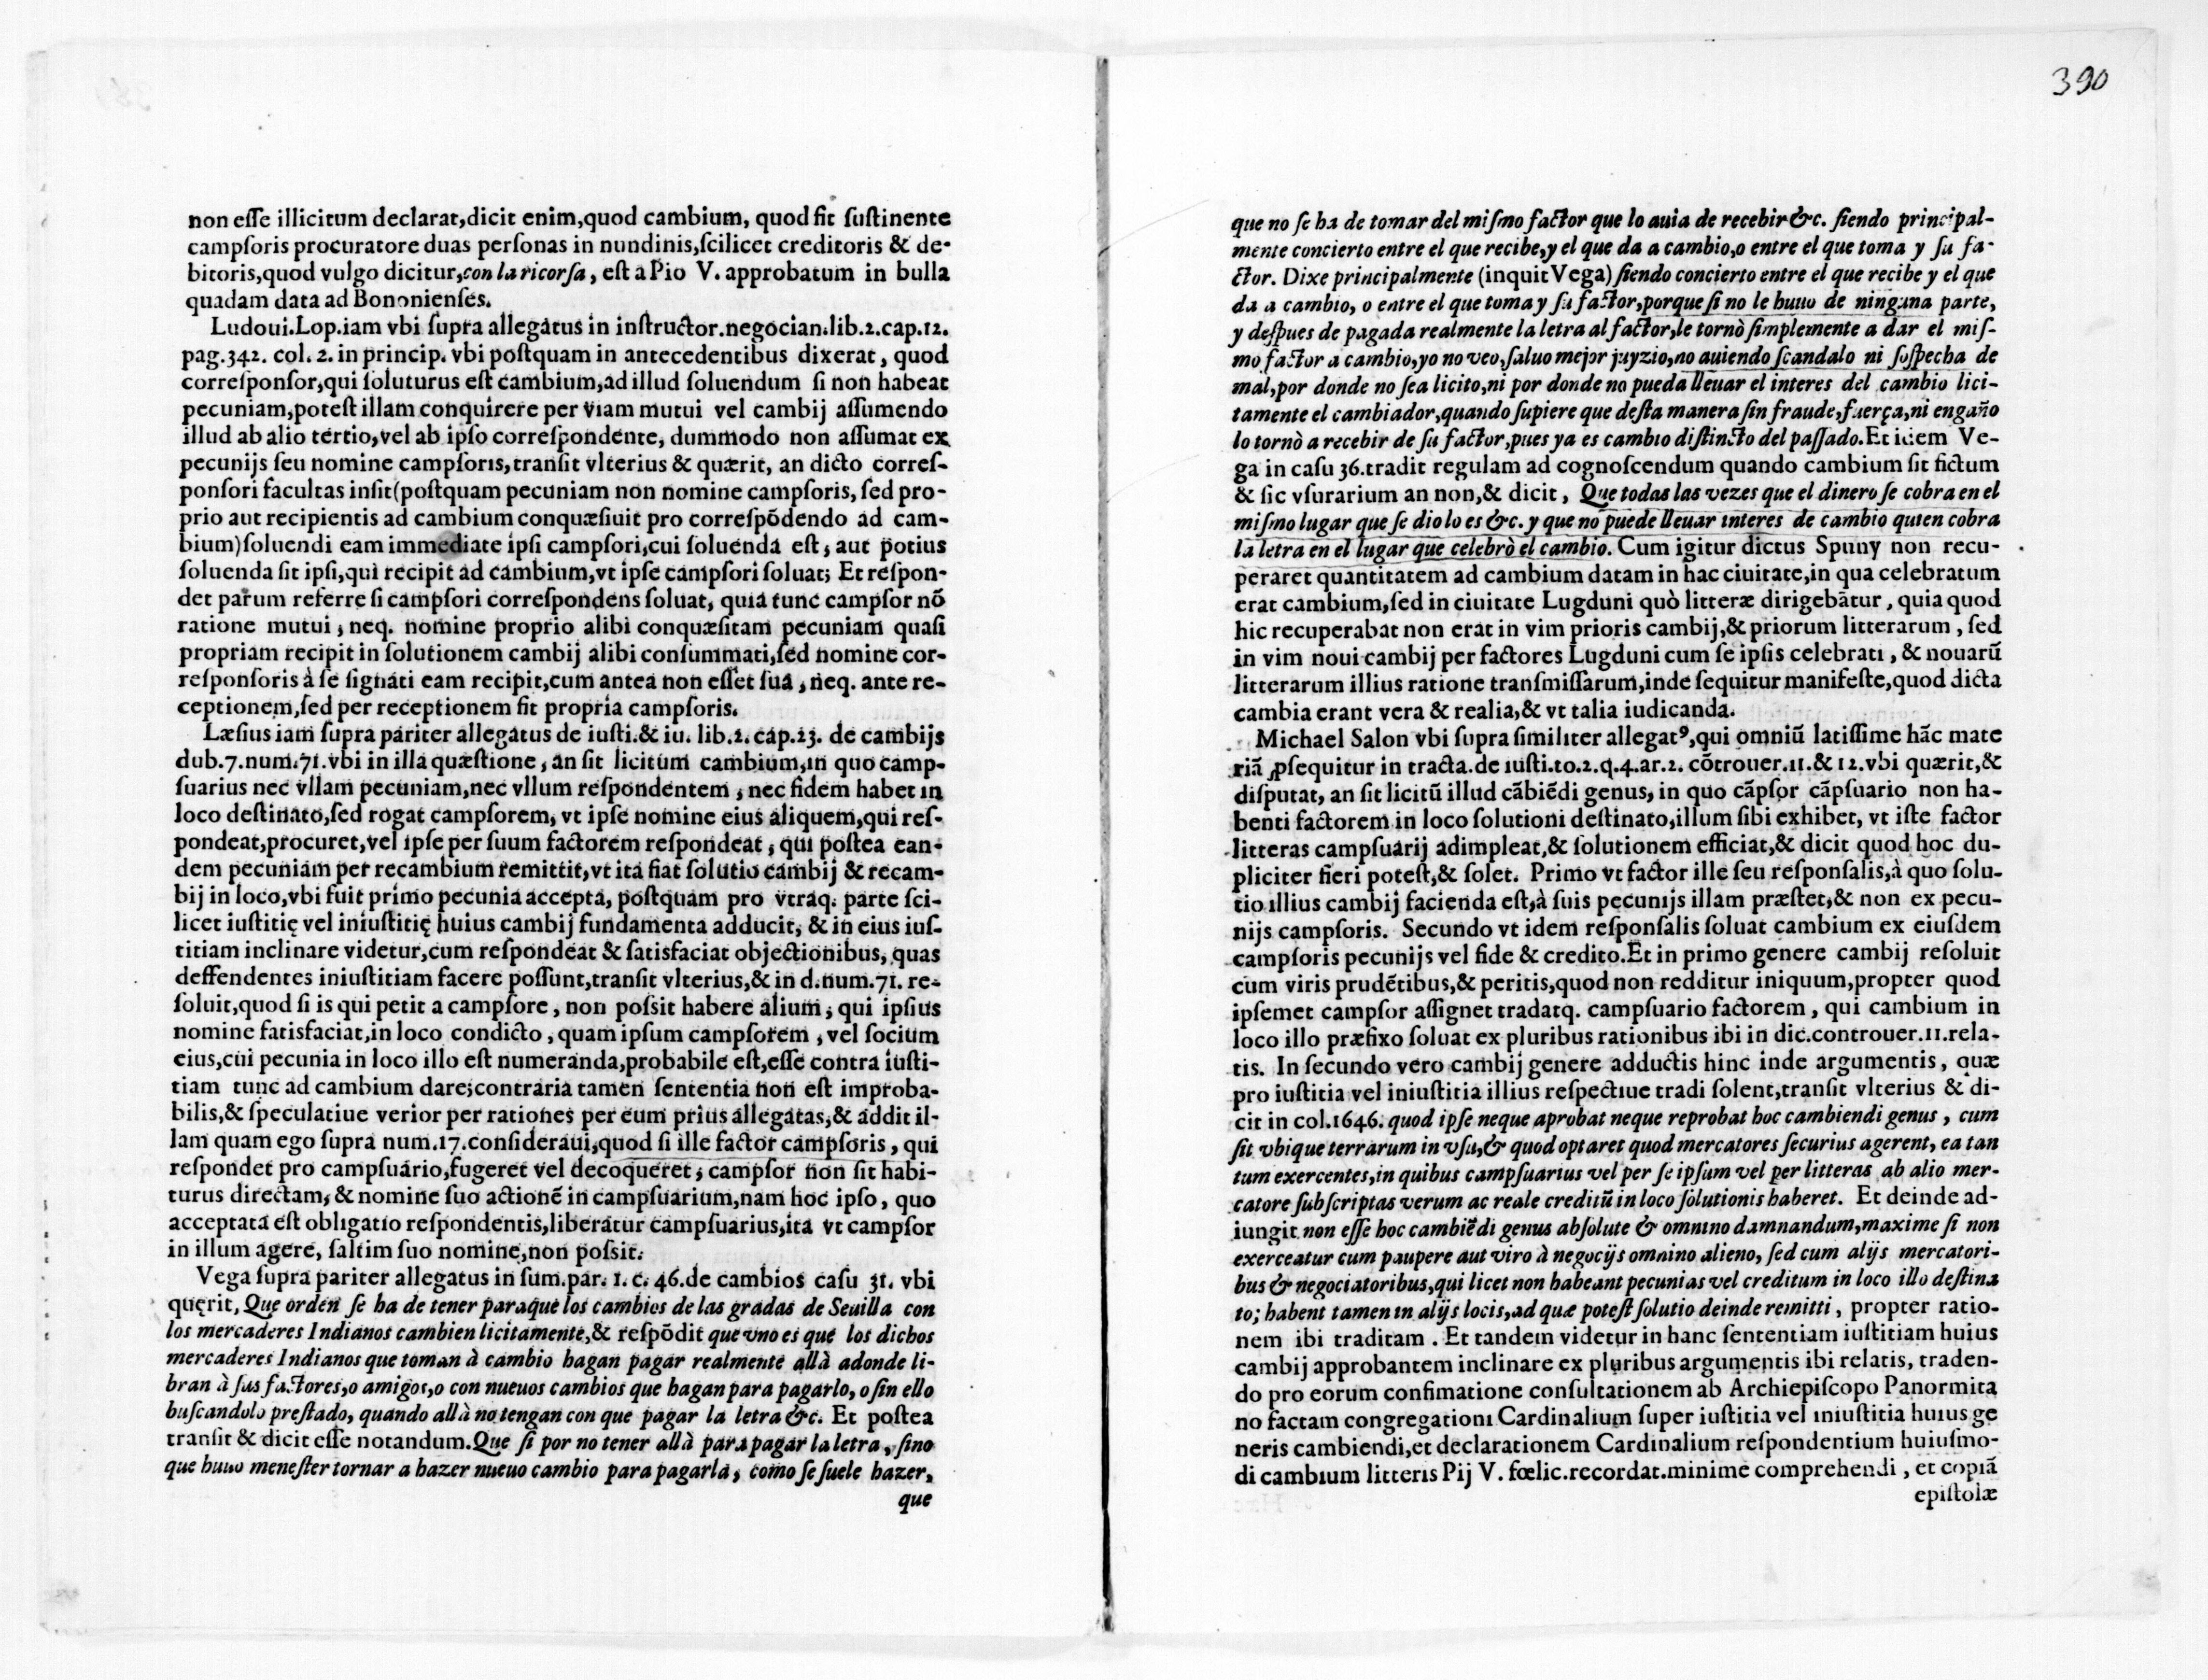 non esse illicitum declarat,dicit enim,quod cambium, quod fit sustinente
campsoris procuratore duas personas in nundinis,scilicet creditoris & de-
bitoris,quod vulgo dicitur,con la ricorsa, est a Pio V. approbatum in bulla
quadam data ad Bononienses.
Ludoui.Lop.iam vbi supra allegatus in instructor.negocian.lib.2.cap.12.
pag.342. col. 2. in princip. vbi postquam in antecedentibus dixerat, quod
corresponsor,qui soluturus est cambium,ad illud soluendum si non habeat
pecuniam,potest illam conquirere per viam mutui vel cambij assumendo
illud ab alio tertio,vel ab ipso correspondente, dummodo non assumat ex
pecunijs seu nomine campsoris,transit vlterius & quærit, an dicto corres-
ponsori facultas insit(postquam pecuniam non nomine campsoris, sed pro-
prio aut recipientis ad cambium conquæsiuit pro correspõdendo ad cam-
bium)soluendi eam immediate ipsi campsori,cui soluenda est, aut potius
soluenda sit ipsi,qui recipit ad cambium,vt ipse campsori soluat; Et respon-
det parum referre si campsori correspondens soluat, quia tunc campsor nõ
ratione mutui, neq. nomine proprio alibi conquæsitam pecuniam quasi
propriam recipit in solutionem cambij alibi consummati,sed nomine cor-
responsoris à se signati eam recipit,cum antea non esset sua, neq. ante re-
ceptionem,sed per receptionem fit propria campsoris.
Læsius iam supra pariter allegatus de iusti.& iu. lib.2. cap.23. de cambijs
dub.7.num.71. vbi in illa quæstione, an sit licitum cambium,in quo camp-
suarius nec vllam pecuniam,nec vllum respondentem, nec fidem habet in
loco destinato,sed rogat campsorem, vt ipse nomine eius aliquem,qui res-
pondeat,procuret,vel ipse per suum factorem respondeat, qui postea ean-
dem pecuniam per recambium remittit,vt ita fiat solutio cambij & recam-
bij in loco,vbi fuit primo pecunia accepta, postquam pro vtraq. parte sci-
licet iustitię vel iniustitię huius cambij fundamenta adducit, & in eius ius-
titiam inclinare videtur,cum respondeat & satisfaciat objectionibus, quas
deffendentes iniustitiam facere possunt,transit vlterius,& in d.num.71. re-
soluit,quod si is qui petit a campsore, non possit habere alium, qui ipsius
nomine satisfaciat,in loco condicto, quam ipsum campsorem, vel socium
eius,cui pecunia in loco illo est numeranda,probabile est,esse contra iusti-
tiam tunc ad cambium dare;contraria tamen sententia non est improba-
bilis,& speculatiue verior per rationes per eum prius allegatas,& addit il-
lam quam ego supra num.17.consideraui,quod si ille factor campsoris, qui
respondet pro campsuario,fugeret vel decoqueret, campsor non sit habi-
turus directam, & nomine suo actionē in campsuarium,nam hoc ipso, quo
acceptata est obligatio respondentis,liberatur campsuarius,ita vt campsor
in illum agere, saltim suo nomine,non possit.
Vega supra pariter allegatus in sum.par. 1. c. 46.de cambios casu 31. vbi
quęrit, Que orden se ha de tener paraque los cambios de las gradas de Seuilla con
los mercaderes Indianos cambien licitamente,& respõdit que vno es que los dichos
mercaderes Indianos que toman à cambio hagan pagar realmente allà adonde li-
bran à sus factores,o amigos,o con nueuos cambios que hagan para pagarlo, o sin ello
buscandolo prestado, quando allà no tengan con que pagar la letra &c. Et postea
transit & dicit esse notandum.Que si por no tener allà para pagar la letra, sino
que huuo menester tornar a hazer nueuo cambio para pagarla, como se suele hazer,
que
390
que no se ha de tomar del mismo factor que lo auia de recebir &c. siendo principal-
mente concierto entre el que recibe,y el que da a cambio,o entre el que toma y su fa-
ctor. Dixe principalmente (inquit Vega) siendo concierto entre el que recibe y el que
da a cambio, o entre el que toma y su factor,porque si no le huuo de ninguna parte,
y despues de pagada realmente la letra al factor,le tornò simplemente a dar el mis-
mo factor a cambio,yo no veo,saluo mejor juyzio,no auiendo scandalo ni sospecha de
mal,por donde no sea licito,ni por donde no pueda lleuar el interes del cambio lici-
tamente el cambiador,quando supiere que desta manera sin fraude,fuerça,ni engaño
lo tornò a recebir de su factor,pues ya es cambio distincto del passado.Et idem Ve-
ga in casu 36.tradit regulam ad cognoscendum quando cambium sit fictum
& sic vsurarium an non,& dicit, Que todas las vezes que el dinero se cobra en el
mismo lugar que se dio lo es &c. y que no puede lleuar interes de cambio quien cobra
la letra en el lugar que celebrò el cambio. Cum igitur dictus Spuny non recu-
peraret quantitatem ad cambium datam in hac ciuitate,in qua celebratum
erat cambium,sed in ciuitate Lugduni quò litteræ dirigebātur, quia quod
hic recuperabat non erat in vim prioris cambij,& priorum litterarum, sed
in vim noui cambij per factores Lugduni cum se ipsis celebrati, & nouarũ
litterarum illius ratione transmissarum,inde sequitur manifeste,quod dicta
cambia erant vera & realia,& vt talia iudicanda.
Michael Salon vbi supra similiter allegatꝰ,qui omniũ latissime hãc mate
riã ꝓsequitur in tracta.de iusti.to.2.q.4.ar.2. cõtrouer.11.& 12.vbi quærit,&
disputat, an sit licitũ illud cãbiẽdi genus, in quo cãpsor cãpsuario non ha-
benti factorem in loco solutioni destinato,illum sibi exhibet, vt iste factor
litteras campsuarij adimpleat,& solutionem efficiat,& dicit quod hoc du-
pliciter fieri potest,& solet. Primo vt factor ille seu responsalis,à quo solu-
tio illius cambij facienda est,à suis pecunijs illam præstet,& non ex pecu-
nijs campsoris. Secundo vt idem responsalis soluat cambium ex eiusdem
campsoris pecunijs vel fide & credito.Et in primo genere cambij resoluit
cum viris prudẽtibus,& peritis,quod non redditur iniquum,propter quod
ipsemet campsor assignet tradatq. campsuario factorem, qui cambium in
loco illo præfixo soluat ex pluribus rationibus ibi in dic.controuer.11.rela-
tis. In secundo vero cambij genere adductis hinc inde argumentis, quæ
pro iustitia vel iniustitia illius respectiue tradi solent,transit vlterius & di-
cit in col.1646. quod ipse neque aprobat neque reprobat hoc cambiendi genus, cum
sit vbique terrarum in vsu,& quod optaret quod mercatores securius agerent, ea tan
tum exercentes,in quibus campsuarius vel per se ipsum vel per litteras ab alio mer-
catore subscriptas verum ac reale creditũ in loco solutionis haberet. Et deinde ad-
iungit non esse hoc cambiẽdi genus absolute & omnino damnandum,maxime si non
exerceatur cum paupere aut viro à negocijs omnino alieno, sed cum alijs mercatori-
bus & negociatoribus,qui licet non habeant pecunias vel creditum in loco illo destina
to; habent tamen in alijs locis,ad quæ potest solutio deinde remitti, propter ratio-
nem ibi traditam. Et tandem videtur in hanc sententiam iustitiam huius
cambij approbantem inclinare ex pluribus argumentis ibi relatis, traden-
do pro eorum confimatione consultationem ab Archiepiscopo Panormita
no factam congregationi Cardinalium super iustitia vel iniustitia huius ge
neris cambiendi,et declarationem Cardinalium respondentium huiusmo-
di cambium litteris Pij V. fœlic.recordat.minime comprehendi, et copiã
epistolæ